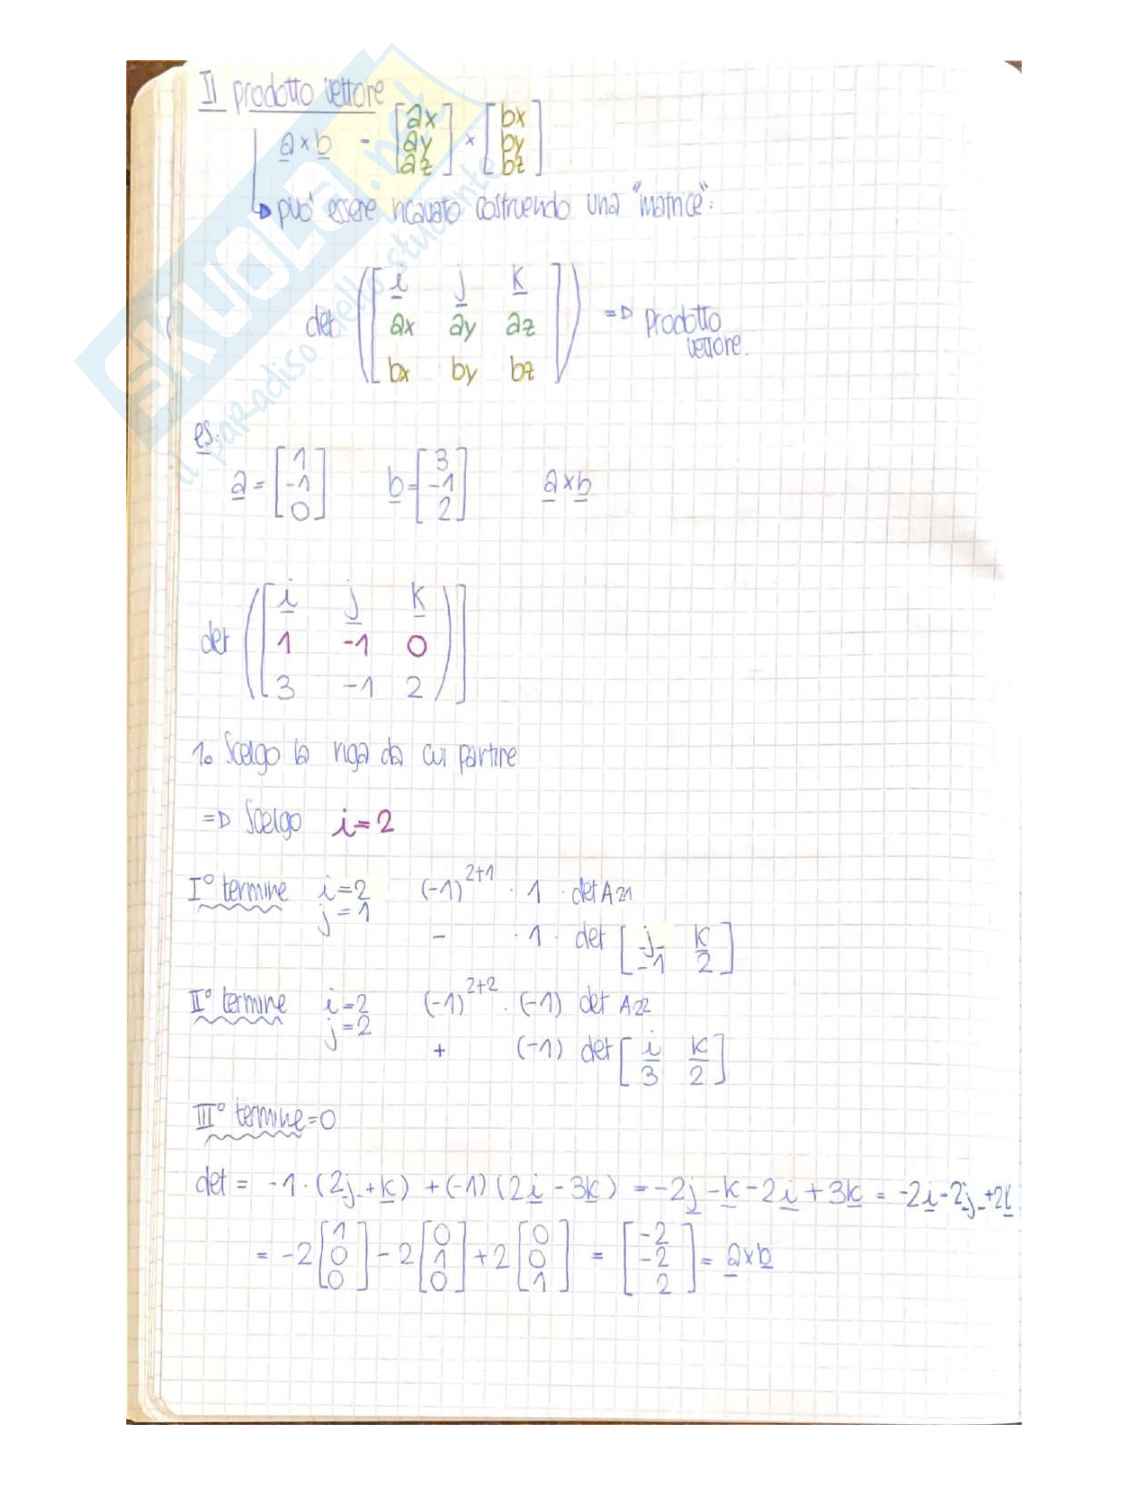 Il prodotto vettore
a × b = [ax ay az] × [bx by bz]
può essere ricavato costruendo una "matrice":
det ([i j k
ax ay az
bx by bz]) => prodotto
vettore.
es.
a = [1 -1 0] b = [3 -1 2] a×b
det ([i j k
1 -1 0
3 -1 2)]
1. Scelgo la riga da cui partire
=> Scelgo i=2
I° termine i=2 j=1 (-1)^2+1 · 1 · det A21
- · 1 · det [j k
-1 2]
II° termine i=2 j=2 (-1)^2+2 · (-1) det A22
+ (-1) det [i k
3 2]
III° termine=0
det = -1·(2j+k) +(-1)(2i-3k) = -2j-k-2i+3k = -2i-2j+2k
= -2[1 0 0] -2[0 1 0] +2[0 0 1] = [-2 -2 2] = a×b
SKUOLA.net
il paradiso dello studente